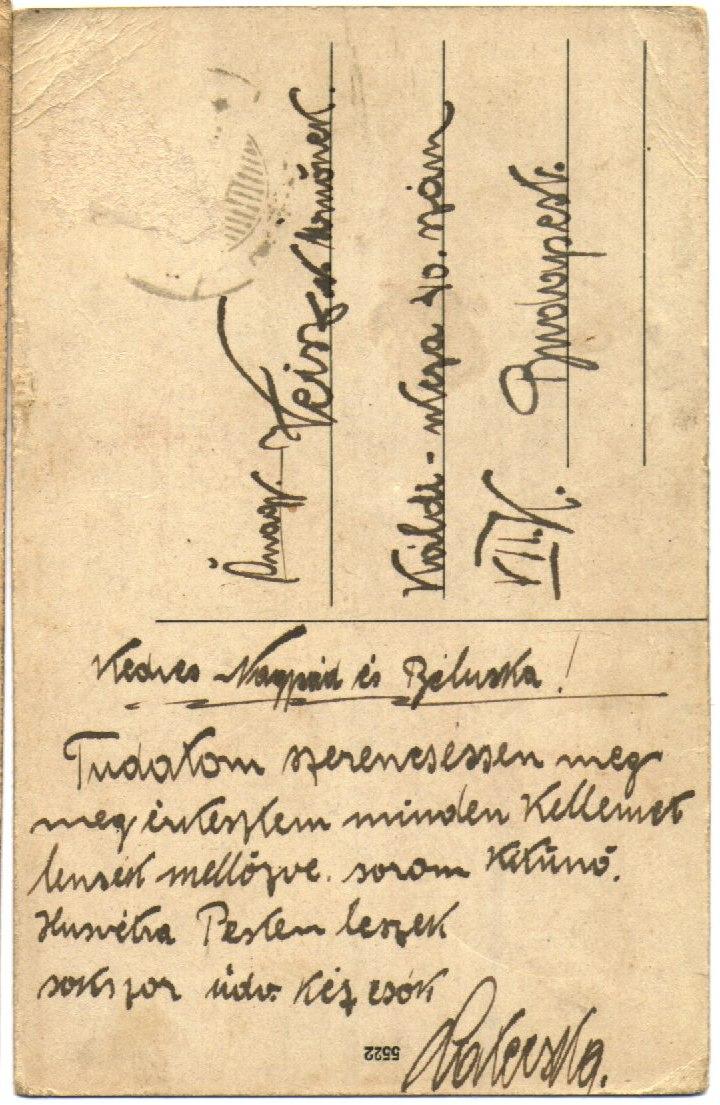 Önagy.
Veiszer Ernőnek.
Káldi-utcza 40. szám
VII. K. Budapest.
Kedves Nagyprid és Béluska!
Tudatom szerencséssen meg
meg érkesztem minden Kellemet
lenséit mellőzve. sorom Kitünő.
Husvétra Pesten leszek
sokszor üdv. Kéz csók
5522